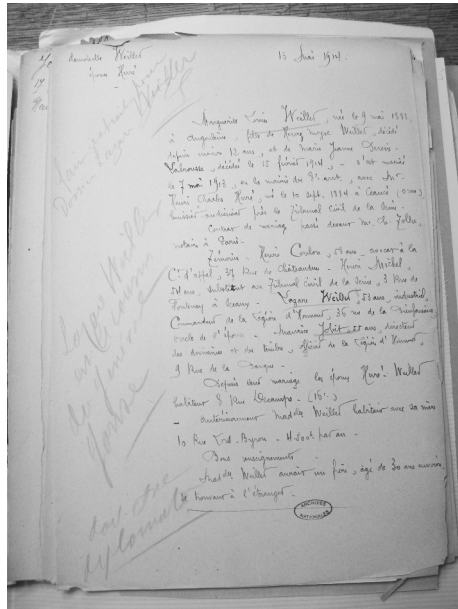 demoiselle Weiller
épouse Huré
13 Mai 1914
Marguerite Louise Weiller, née le 9 mai 1881,
à Angoulême, fille de Henry Moyse Weiller, décédé
depuis environ 12 ans, et de Marie Jeanne
Labrousse, décédée le 15 février 1914, s'est mariée
le 7 mai 1913, en la mairie du 9e arrt, avec
Henri Charles Huré, né le 10 sept. 1874 à Ceaucé (Orne)
huissier audiencier près le Tribunal Civil de la Seine.
Contrat de mariage passé devant Me
notaire à Paris.
Témoins. Henri Coulon, 58 ans, avocat à la
Cr d'appel, 37 Rue de Châteaudun. Henri Michel,
ans, substitut au Tribunal Civil de la Seine, 3 Rue de
Fontenay à Sceaux. Lazare Weiller, 53 ans, industriel,
Commandeur de la Légion d'Honneur, 36 rue de la Bienfaisance,
oncle de l'épouse. Maurice 55 ans, directeur
des domaines et du timbre, officier de la Légion d'Honneur,
9 Rue de la
Depuis leur mariage les époux Huré-Weiller
habitent 8 Rue Decamps. (16e)
antérieurement Madlle Weiller habitait avec sa mère
10 Rue Lord-Byron. 4.500f par an.
Bons renseignements
Madlle Weiller aurait un frère, âgé de 30 ans environ
se trouvant à l'étranger.
ARCHIVES
NATIONALES
Dossier Lazare Weiller
Lazare Weiller
de
doit être
diplomate